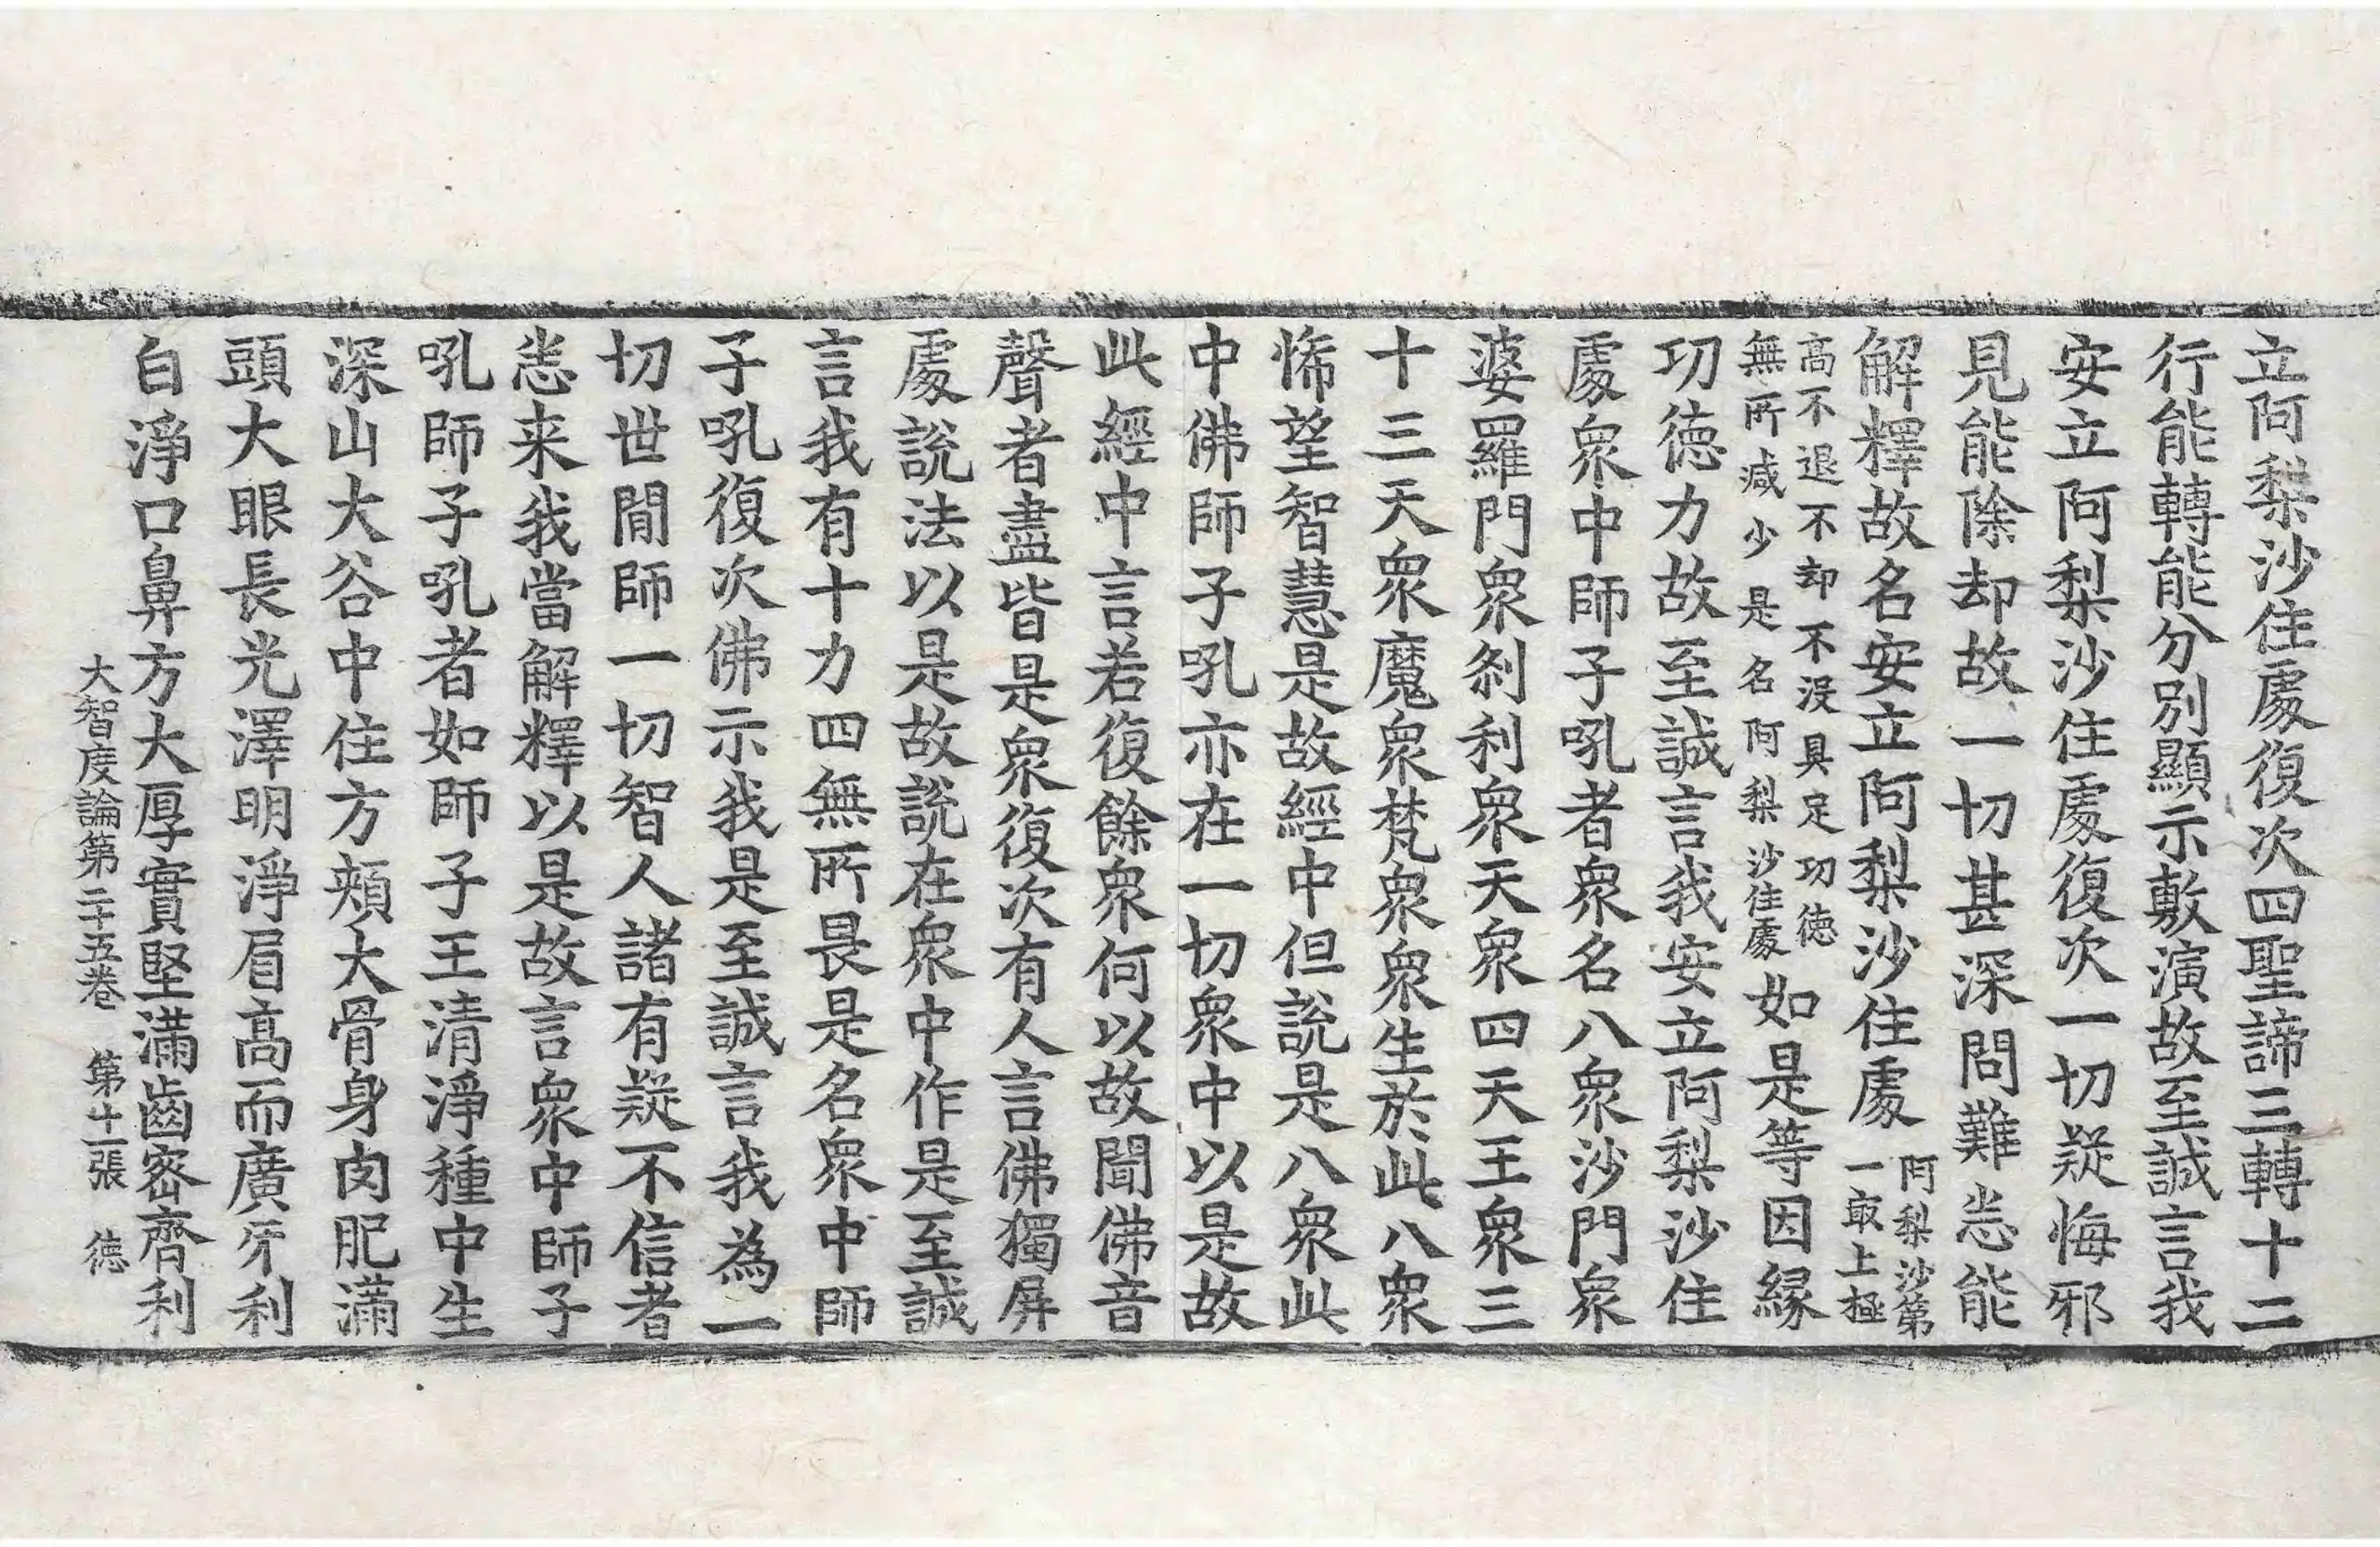 立阿梨沙住處復次四聖諦三轉十二
行能轉能分別顯示敷演故至誠言我
安立阿梨沙住處復次一切疑悔邪
見能除却故一切甚深問難悉能
解釋故名安立阿梨沙住處阿梨沙第一冣上極
高不退不却不没具定功德無所减少是名阿梨沙住處如是等因緣
功德力故至誠言我安立阿梨沙住
處衆中師子吼者衆名八衆沙門衆
婆羅門衆剎利衆天衆四天王衆三
十三天衆魔衆梵衆衆生於此八衆
悕望智慧是故經中但說是八衆此
中佛師子吼亦在一切衆中以是故
此經中言若復餘衆何以故聞佛音
聲者盡皆是衆復次有人言佛獨屏
處說法以是故說在衆中作是至誠
言我有十力四無所畏是名衆中師
子吼復次佛示我是至誠言我為一
切世間師一切智人諸有疑不信者
悉来我當解釋以是故言衆中師子
吼師子吼者如師子王清淨種中生
深山大谷中住方頰大骨身肉肥滿
頭大眼長光澤明淨眉高而廣牙利
白淨口鼻方大厚實堅滿齒密齊利
大智度論第二十五卷 第十一張 德